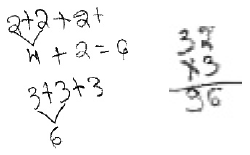 2+2+2+
4+2=6
3+3+3
6
32
×3
96